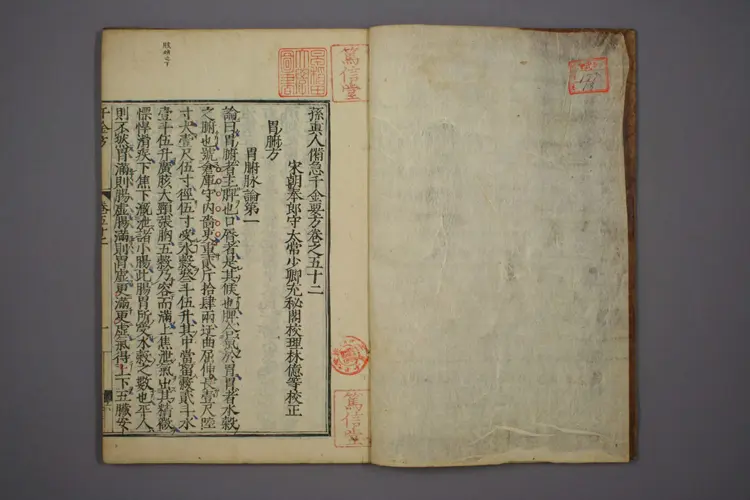 孫真人備急千金要方卷之五十二
宋朝奉郎守太常少卿充秘閣校理林億等校正
胃腑方
胃腑脉論第一
論曰胃腑者主脾也口唇者是其候也脾合氣於胃胃者水穀
之腑也號倉庫守内嗇吏重貳斤拾肆兩迂曲屈伸長貳尺陸
寸大壹尺伍寸徑伍寸受水穀叁斗伍升其中當留穀貳斗水
壹斗伍升廣胲大頸張胸五穀乃容而滿上焦泄氣出其精微
慓悍滑疾下焦下溉泄諸小腸此腸胃所受水穀之數也平人
則不然胃滿則腸虛腸滿則胃虛更滿更虛氣得上下五臟安
千金方
卷五十二
一
篤信堂
篤信堂